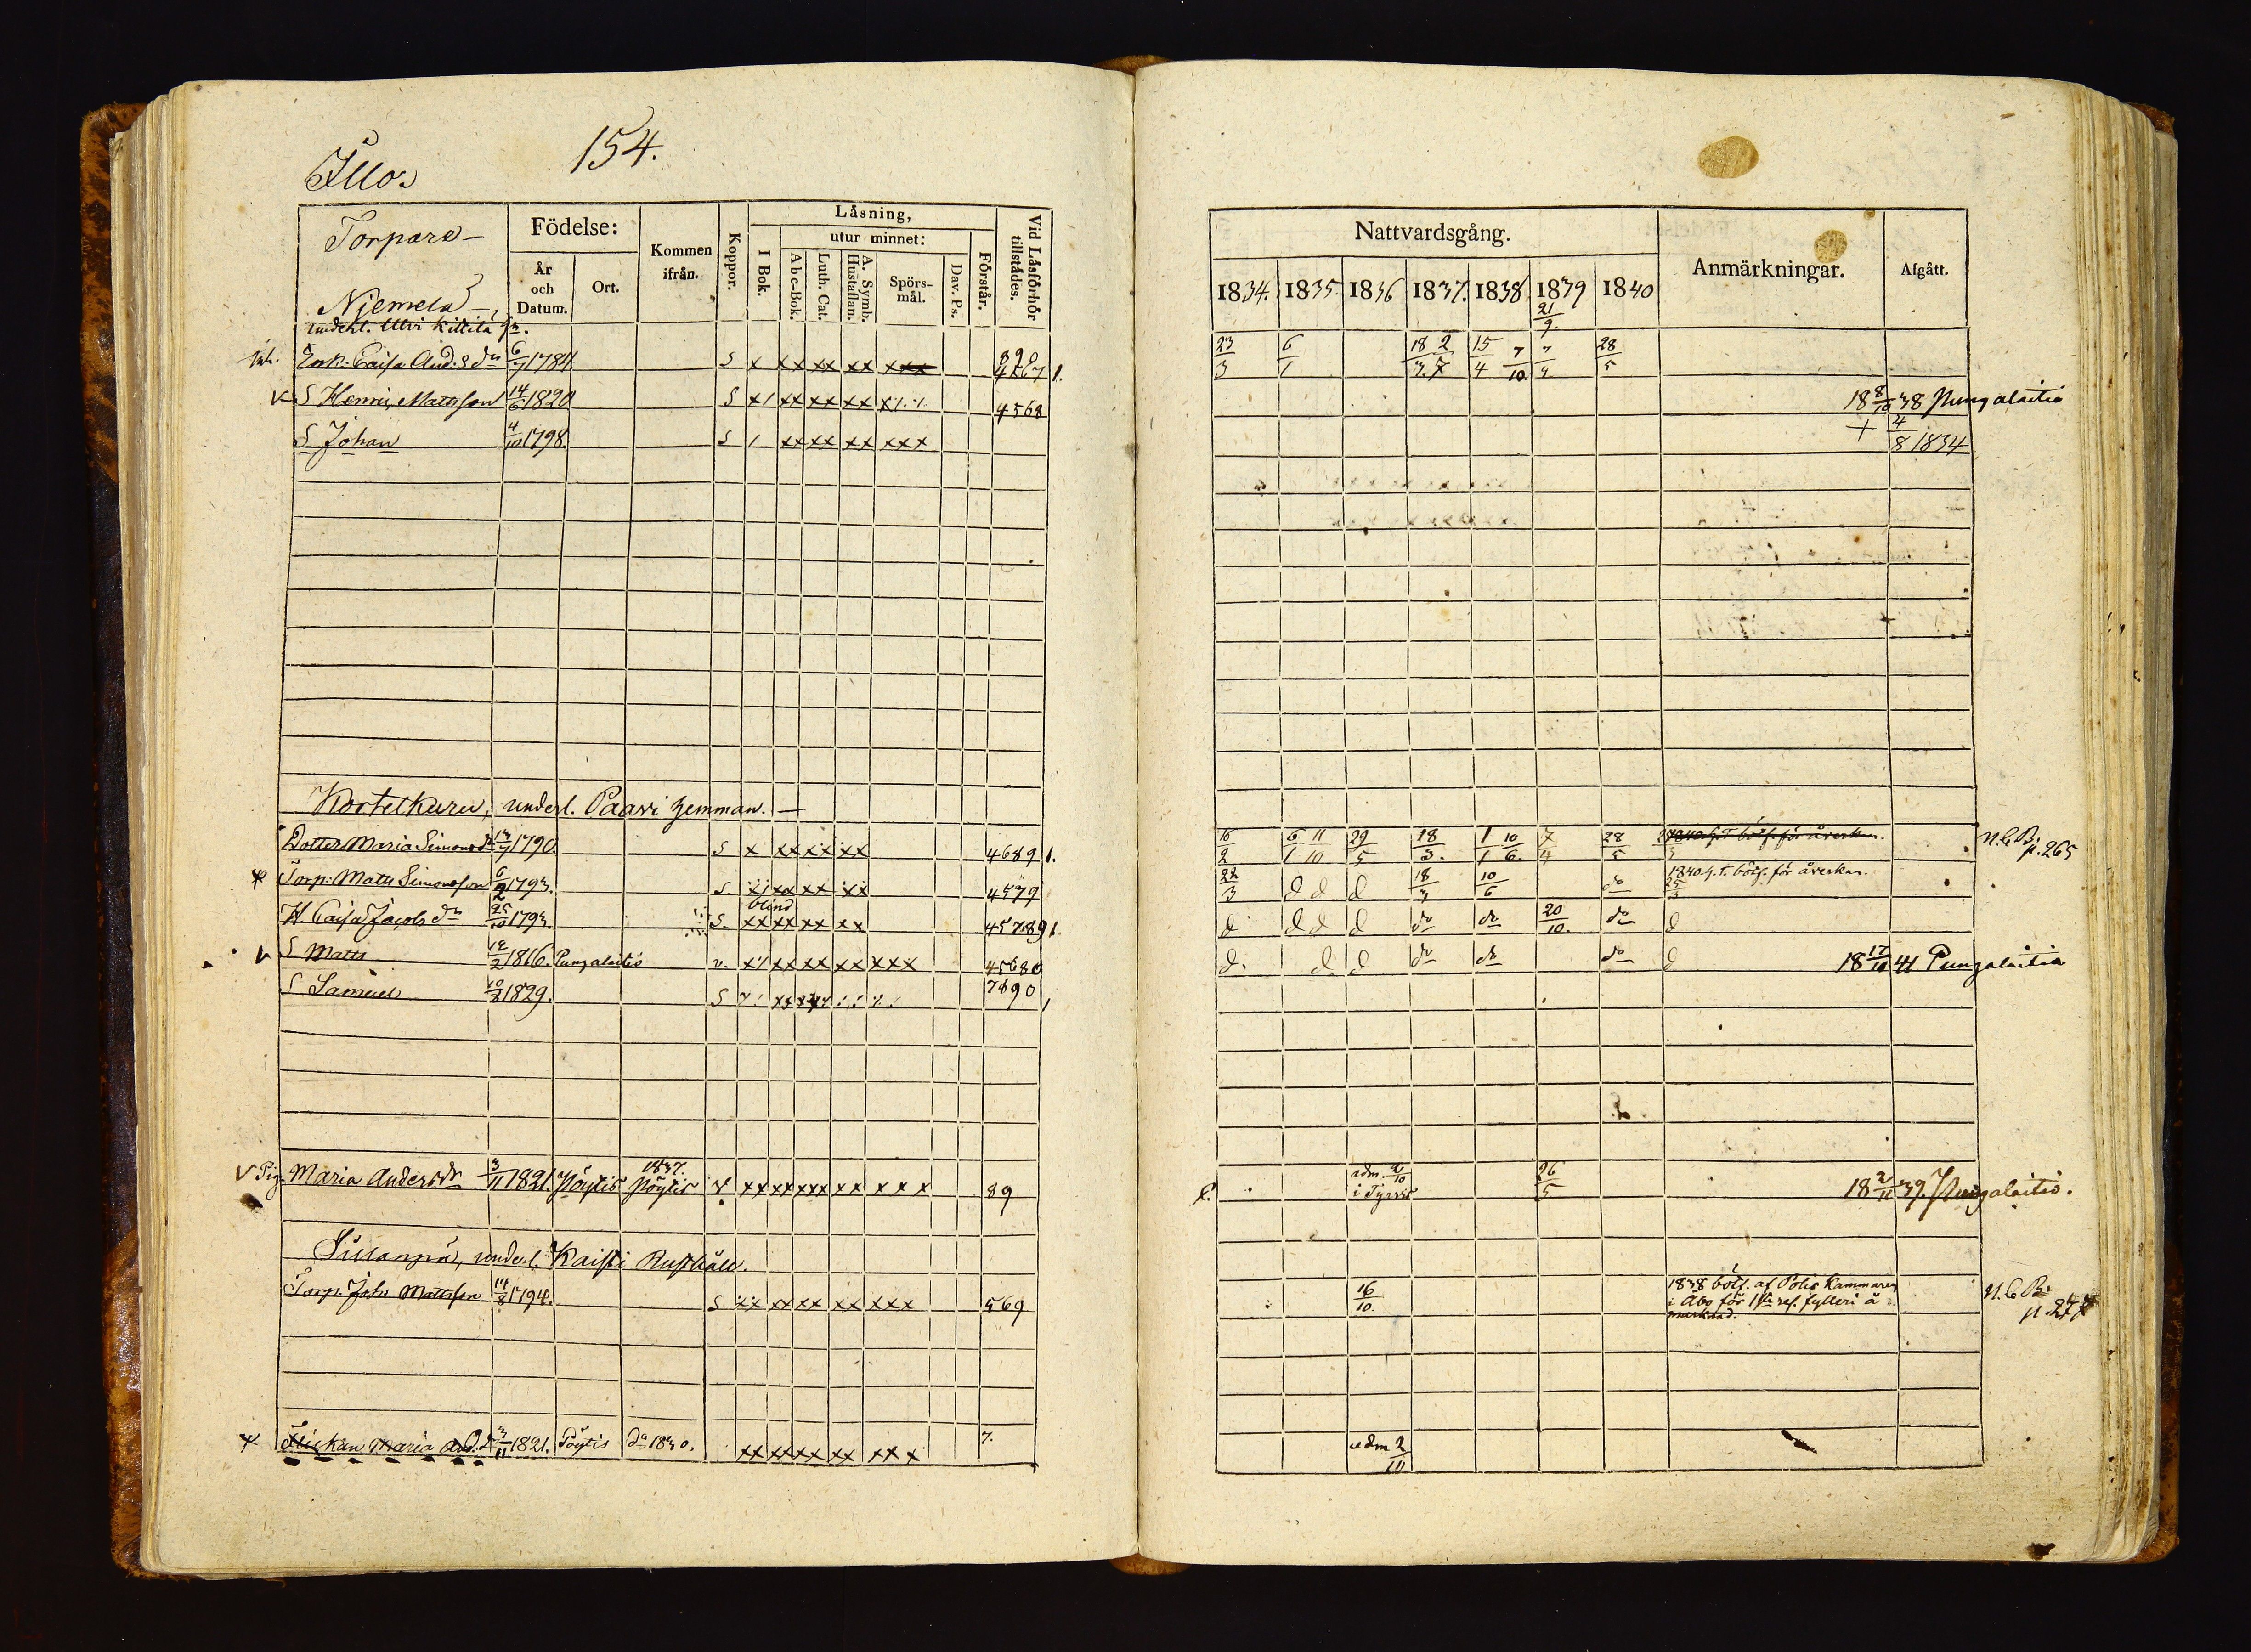 154.
Illo.
Torpare
Födelse:
Kommen ifrån.
Koppor.
Läsning,
utur minnet:
I Bok.
Abc-Bok.
Luth. Cat.
A. Symb. Hustaflan.
Spörsmål.
Dav. Ps.
Förstår.
Vid Läsförhör tillstådes.
År och Datum.
Ort.
Niemelä
Enk. Caisa And:s dr 6/7 1784. S x xx xx xx 890 4567 1.
S Henric Mattsson 14/6 1820 S x/ xx xx xx 4568
S Johan 4/10 1798. S / xx xx xx xxx
Kortetkuru, underl. Paavi hemman.
Dotter Maria Simonsdr 13/7 1790. S x xx xx xx 4689 1.
Torp: Matts Simonsson 6/2 1793. S. xx xx xx 4579
blind
H. Caisa Jacobs dr 25/10 1793. S. xx xx xx xx 45789 1
S. Matts 12/2 1816. Pungalaitio v. x/ xx xx xx xxx 45680
S Samuel 10/2 1829. S 7890
v Pig. Maria Andersdr 3/11 1821. Pöytis 1837. Pöytis xx xx xxx xx x x x 89
Sillanpä, underl. Kaisti Rusthåll.
Torp. Joh: Mattsson 14/8 1794. S xx xx xx xx xxx 569
x Flickan Maria And.dr 3/11 1821. Pöytis do 1830. xx xx xx xx xxx 7.
Nattvardsgång.
Anmärkningar.
Afgått.
1834. 1835. 1836 1837. 1838 1839 1840
21/9.
23/3 6/1 18/3. 2/7 15/4 7/10. 28/5
18 8/10 38 Pungalaitio
+ 4/8 1834
16/2 6/1 11/10 29/5 18/3. 1/1 10/6. 7/4 28/5 1840 h. T. böt. för åverkan. N.C.B. p. 265
22/3 d d d 18/3 10/6 do 1840 h. T. böt. för åverkan.
25/3
d d d d do do 20/10. do d
d. d d do do do d 18 17/10 41 Pungalaitio
adm. 2/10 26/5 18 2/11 39. Pungalaitio.
i Tyrvis
16/10. 1838 böt. af Polis Kammaren
i Åbo för 1sta res. fylleri å
marknad.
N.C.B: p. 277
adm 2/10